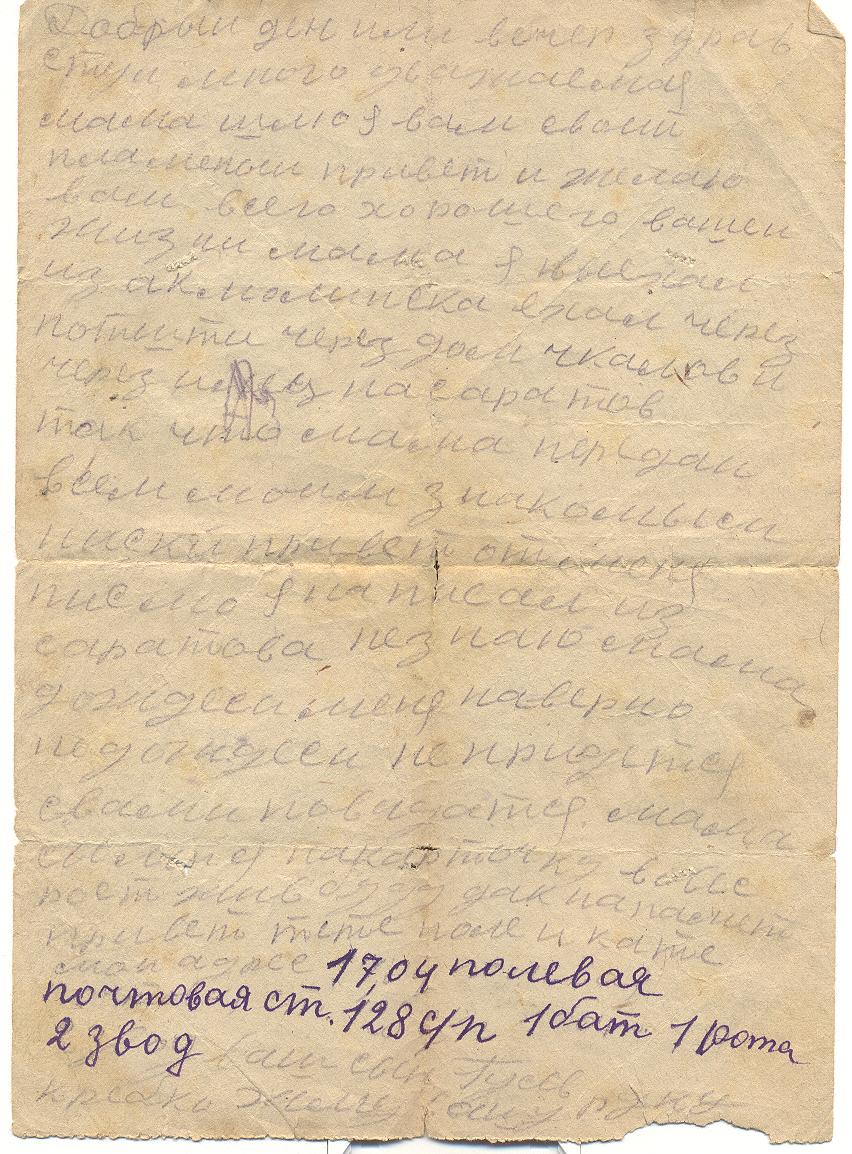 Добрый ден или вечер здрав
ствуй много уважаемая
мама шлю я вам свой
пламеный привет и желаю
вам всего хорошего вашей
жизни мама я выехал
из акмолинска ехал через
потшти через дом чкалов и
через на саратов
так что мама передай
всем моим знакомым
ниский привет от меня
письмо я написал из
саратова незнаю мама
дождеси меня наверно
недождеси непридется
свами повидатся мама
сымися накарточку вовес
рост жив буду дак напамет
привет тете поле и кате
мой адрес 17,04 полевая
почтовая ст. 128 с/п 1 бат 1 рота
2 звод
ваш сын Гусь
крепко жему вашу руку